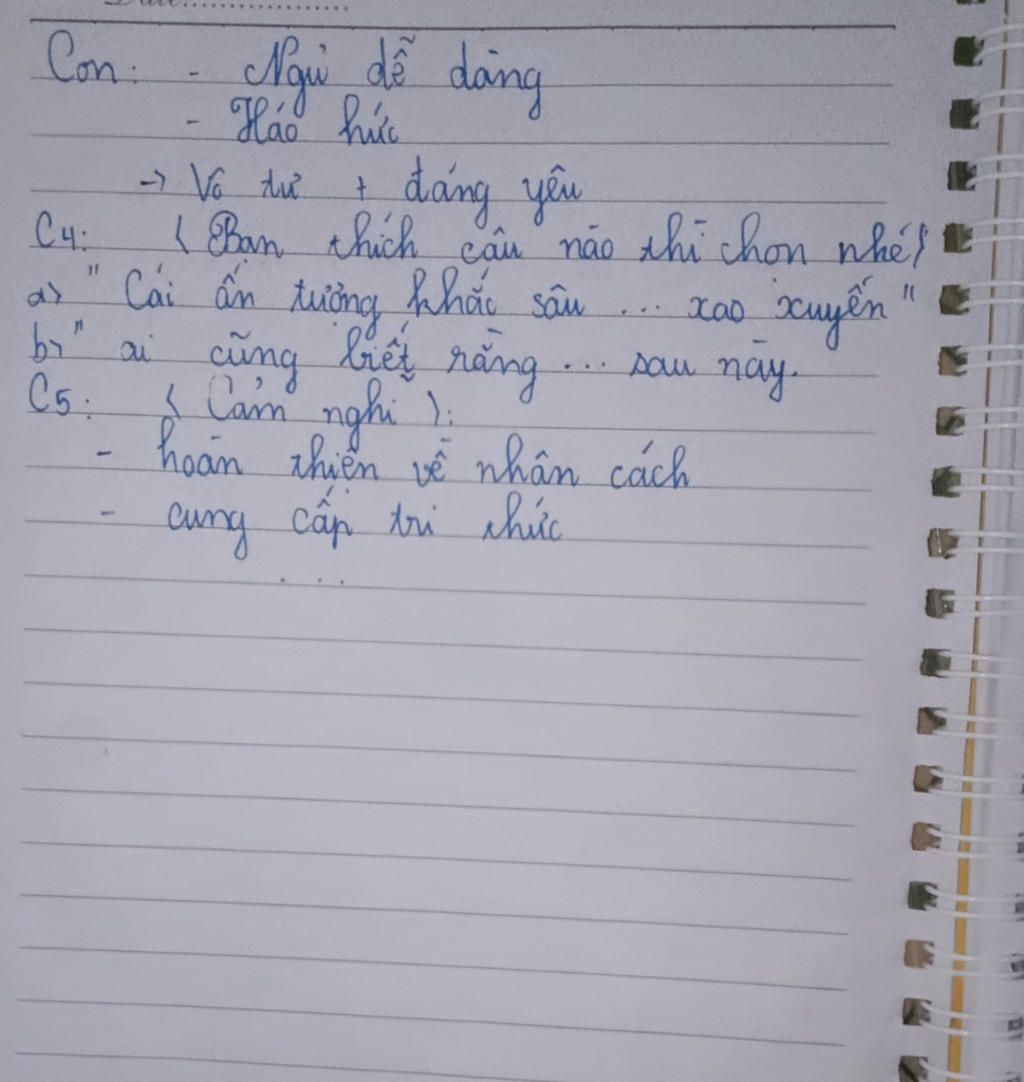 Con: - Ngủ dễ dàng
- Háo hức
→ Vô tư + đáng yêu
C4: (Bạn thích câu nào thì chọn nhé)
a) "Cái ấn tượng khắc sâu ... xao xuyến"
b) " ai cũng biết rằng ... sau này.
C5: (Cảm nghĩ):
- hoàn thiện về nhân cách
- cung cấp tri thức
...